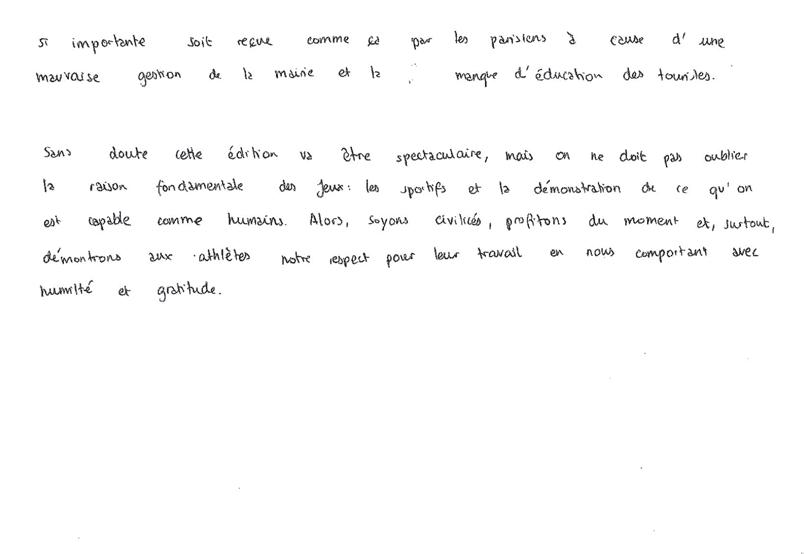 si importante soit reçue comme ça par les parisiens à cause d' une
mauvaise gestion de la mairie et la manque d'éducation des touristes.
Sans doute cette édition va être spectaculaire, mais on ne doit pas oublier
la raison fondamentale des Jeux: les sportifs et la démonstration de ce qu'on
est capable comme humains. Alors, soyons civilicés, profitons du moment et, surtout,
démontrons aux athlètes notre respect pour leur travail en nous comportant avec
humilté et gratitude.